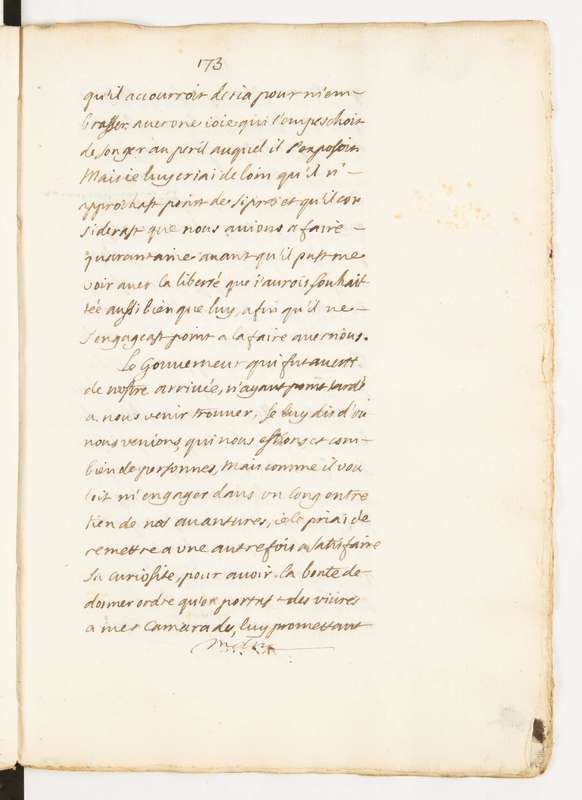 173
qu'il accourroit desia pour m'em-
brasser auec vne ioie qui l'empeschoit
de songer au peril auquel il s'exposoit.
Mais ie luy criai de loin qu'il n'-
approchast point de si pres et qu'il con
siderast que nous auions a faire-
quarantaine auant qu'il pust me
voir auec la liberté que i'aurois souhait
tée aussi bien que luy, afin qu'il ne-
s'engageast point a la faire auec nous.
Le Gouuerneur qui fut auerti
de nostre arriuée, n'ayant point tardé
a nous venir trouuer, Je luy dis d'où
nous venions, qui nous estions et com-
bien de personnes, Mais comme il vou
loit m'engager dans vn long entre
tien de nos auantures, ie le priai de
remettre a vne autre fois a satisfaire
sa curiosité, pour auoir la bonté de
donner ordre qu'on portast des viures
a mes Camarades, luy promettant